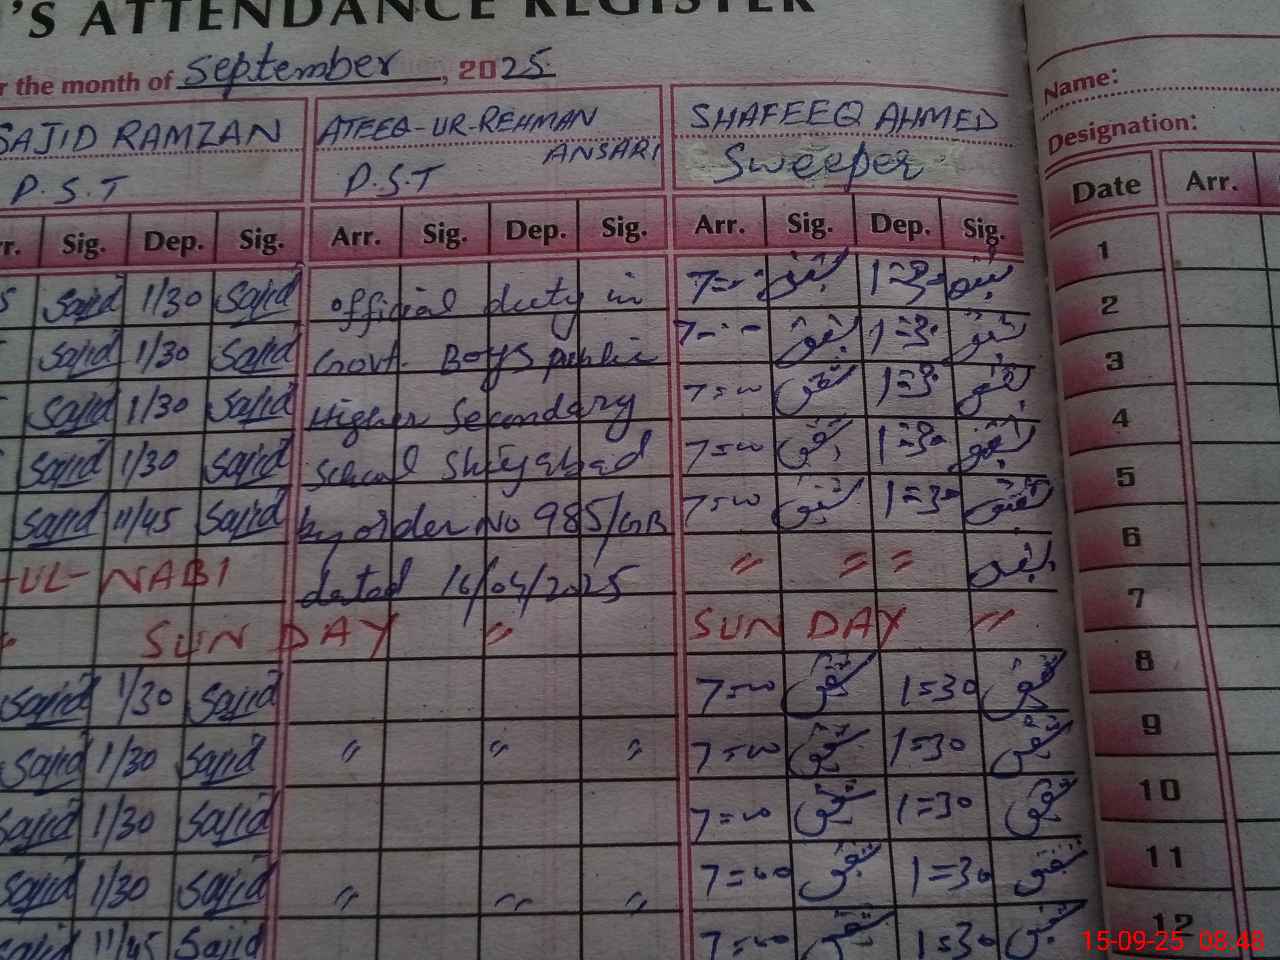 'S ATTENDANCE REGISTER
r the month of September, 2025
SAJID RAMZAN ATEEQ-UR-REHMAN ANSARI SHAFEEQ AHMED Name:
P.S.T P.S.T Sweeper Designation:
rr. Sig. Dep. Sig. Arr. Sig. Dep. Sig. Arr. Sig. Dep. Sig. Date Arr.
5 Sajid 1/30 Sajid official duty in 7= 1=30 1
Sajid 1/30 Sajid Govt. Boys public 1=30 2
Sajid 1/30 Sajid Higher Secondary 7=00 1=30 3
Sajid 1/30 Sajid School Shujabad 7=00 1=30 4
Sajid 11/45 Sajid by order No 985/GB 7=00 1=30 5
-UL-NABI dated 16/04/2025 〃 〃 〃 6
〃 SUNDAY 〃 SUNDAY 〃 7
Sajid 1/30 Sajid 7=00 1=30 8
Sajid 1/30 Sajid 〃 〃 〃 7=00 1=30 9
Sajid 1/30 Sajid 7=00 1=30 10
Sajid 1/30 Sajid 〃 〃 〃 7=00 1=30 11
Sajid 11/45 Sajid 7=00 1=30 12
15-09-25 08:48